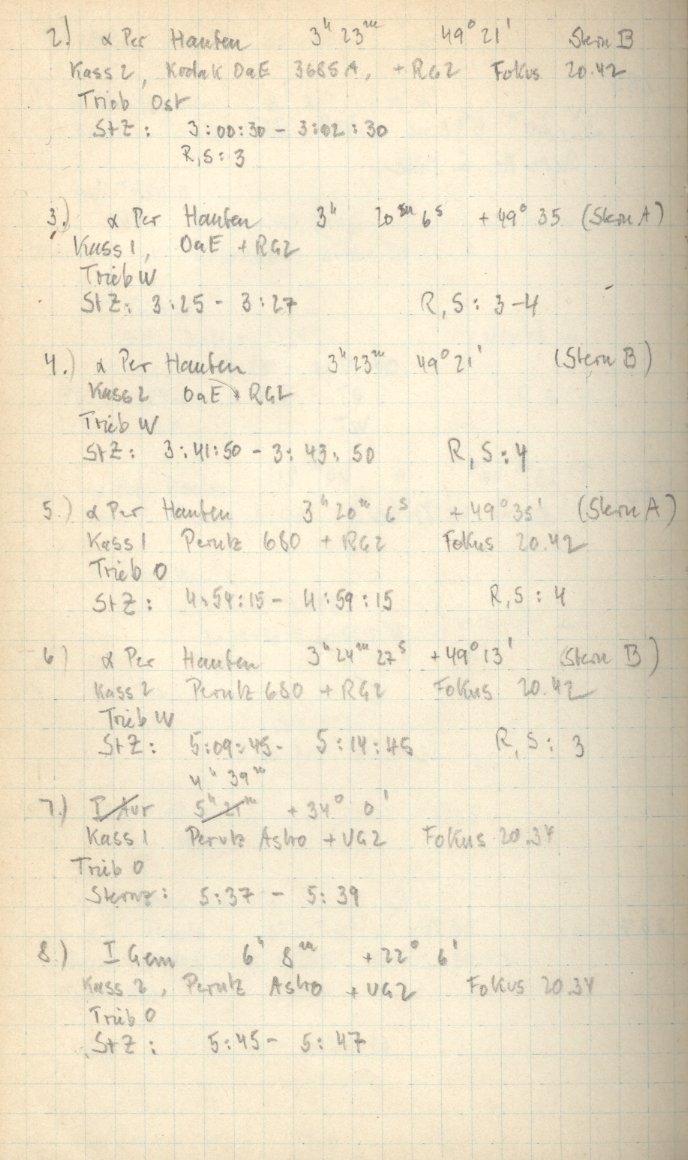 2.) α Per Haufen 3ʰ 23ᵐ 49° 21' Stern B
Kass 2, Kodak OaE 3685A, + RG2 Fokus 20.42
Trieb Ost
StZ: 3:00:30 - 3:02:30
R,S: 3
3.) α Per Haufen 3ʰ 20ᵐ 6ˢ +49° 35 (Stern A)
Kass 1, OaE + RG2
Trieb W
StZ: 3:25 - 3:27 R,S: 3-4
4.) α Per Haufen 3ʰ 23ᵐ 49° 21' (Stern B)
Kass 2 OaE + RG2
Trieb W
StZ: 3:41:50 - 3:43:50 R,S: 4
5.) α Per Haufen 3ʰ 20ᵐ 6ˢ +49° 35' (Stern A)
Kass 1 Perutz 680 + RG2 Fokus 20.42
Trieb O
StZ: 4:54:15 - 4:59:15 R,S: 4
6) α Per Haufen 3ʰ 24ᵐ 27ˢ +49° 13' (Stern B)
Kass 2 Perutz 680 + RG2 Fokus 20.42
Trieb W
StZ: 5:09:45 - 5:14:45 R,S: 3
4ʰ 39ᵐ
7.) I Aur 5ʰ 21ᵐ +34° 0'
Kass 1 Perutz Astro + UG2 Fokus 20.34
Trieb O
Sternz: 5:37 - 5:39
8.) I Gem 6ʰ 8ᵐ +22° 6'
Kass 2, Perutz Astro + UG2 Fokus 20.34
Trieb O
StZ: 5:45 - 5:47